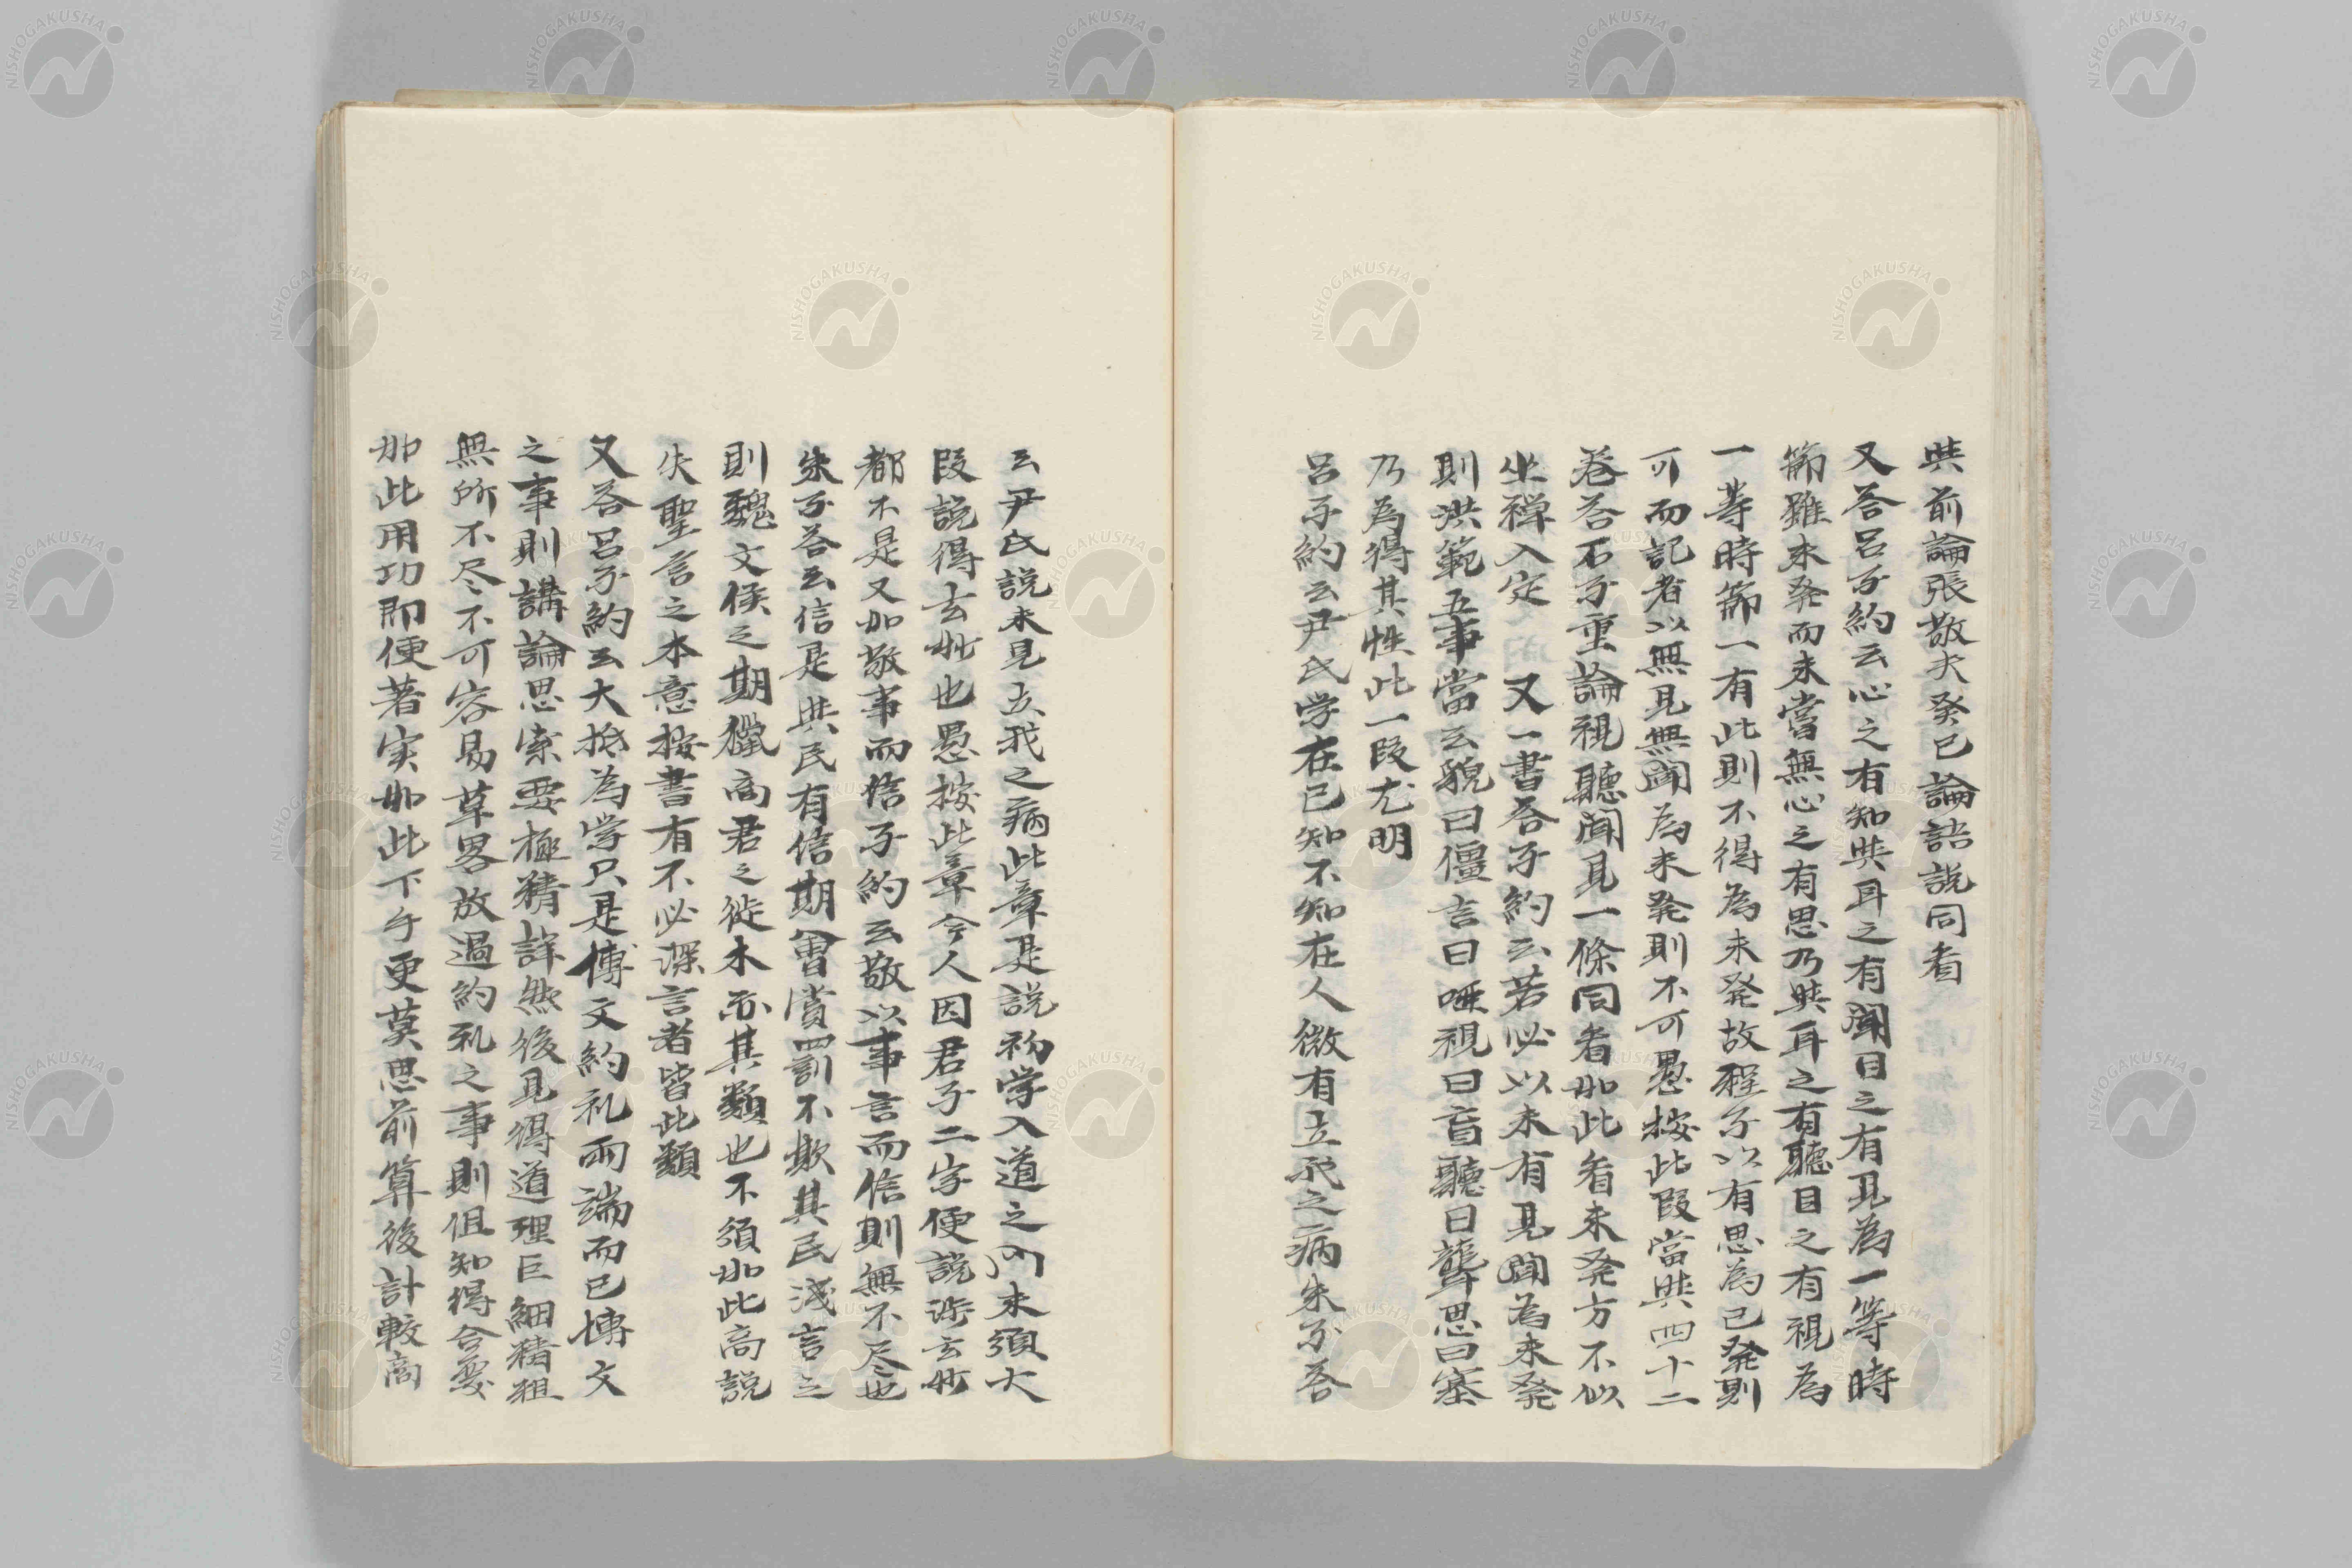 與前論張敬夫癸巳論語説同看
又荅呂子約云心之有知與耳之有聞目之有見為一等時
節雖未発而未嘗無心之有思乃與耳之有聽目之有視為
一等時節一有此則不得為未発故程子以有思為已発則
可而記者以無見無聞為未発則不可愚按此段當與四十二
巻荅石子重論視聽聞見一條同看如此看未発方不似
坐禅入定又一書荅子約云若必以未有見聞為未発
則洪範五事當云貌曰僵言曰唖視曰盲聽曰聾思曰塞
乃為得其性此一段尤明
呂子約云尹氏学在已知不知在人微有立我之病朱子荅
云尹氏説未見立我之病此章是説初学入道之門未須大
段説得玄妣也愚按此章今人因君子二字便説渉玄妙
都不是又如敬事而信子約云敬以事言而信則無不尽也
朱子荅云信是與民有信期會賞罰不欺其民淺言之
則魏文侯之期獵商君之徙木亦其類也不須如此高説
失聖言之本意按書有不必深言者皆此類
又荅呂子約云大抵為学只是博文約礼兩端而已博文
之事則講論思索要極精詳然後見得道理巨細精粗
無所不尽不可容易草畧放過約礼之事則但知得合要
如此用功即便著実如此下手更莫思前算後計較商